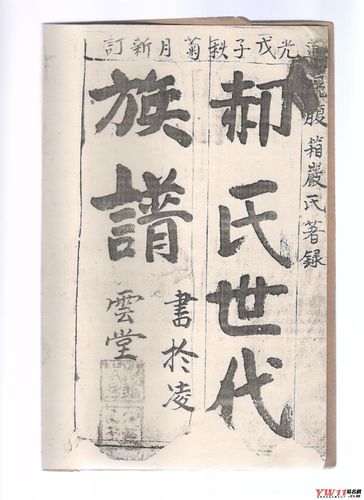 道光戊子秋菊月新訂
腹箱嚴氏著録
郝氏世代
族譜
書於凌
雲堂
YW11